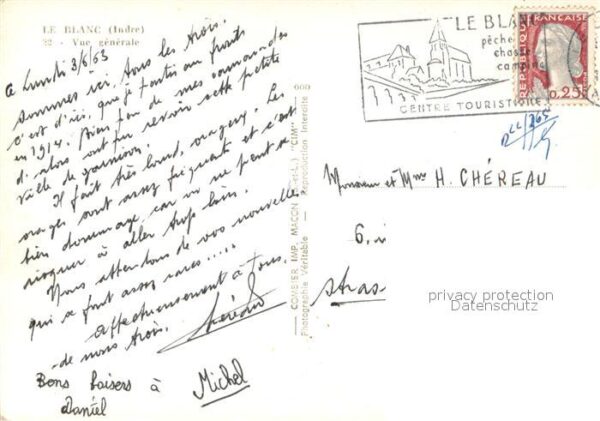 LE BLANC (Indre)
82 - Vue générale
Ce Lundi 3/6/63
sommes ici tous les trois.
C'est d'ici, que je partis au front
en 1914. Bien peu de mes camarades
d'alors ont pu revoir cette petite
ville de garnison.
Il fait très lourd, orageux. Les
orages sont assez fréquents et c'est
bien dommage, car on ne peut se
risquer à aller trop loin.
Nous attendons de vos nouvelles
qui se font assez rares.....
Affectueusement à tous.
de nous trois.
Bons baisers à Michel
Daniel
600
COMBIER IMP. MACON (S.-et-L.) "CIM"
Photographie Véritable - Reproduction Interdite
LE BLANC
pêche
chasse
camping
CENTRE TOURISTIQUE
REPUBLIQUE FRANÇAISE
0,25F
Monsieur et Mme H. CHÉREAU
6, 
Stras
privacy protection
Datenschutz